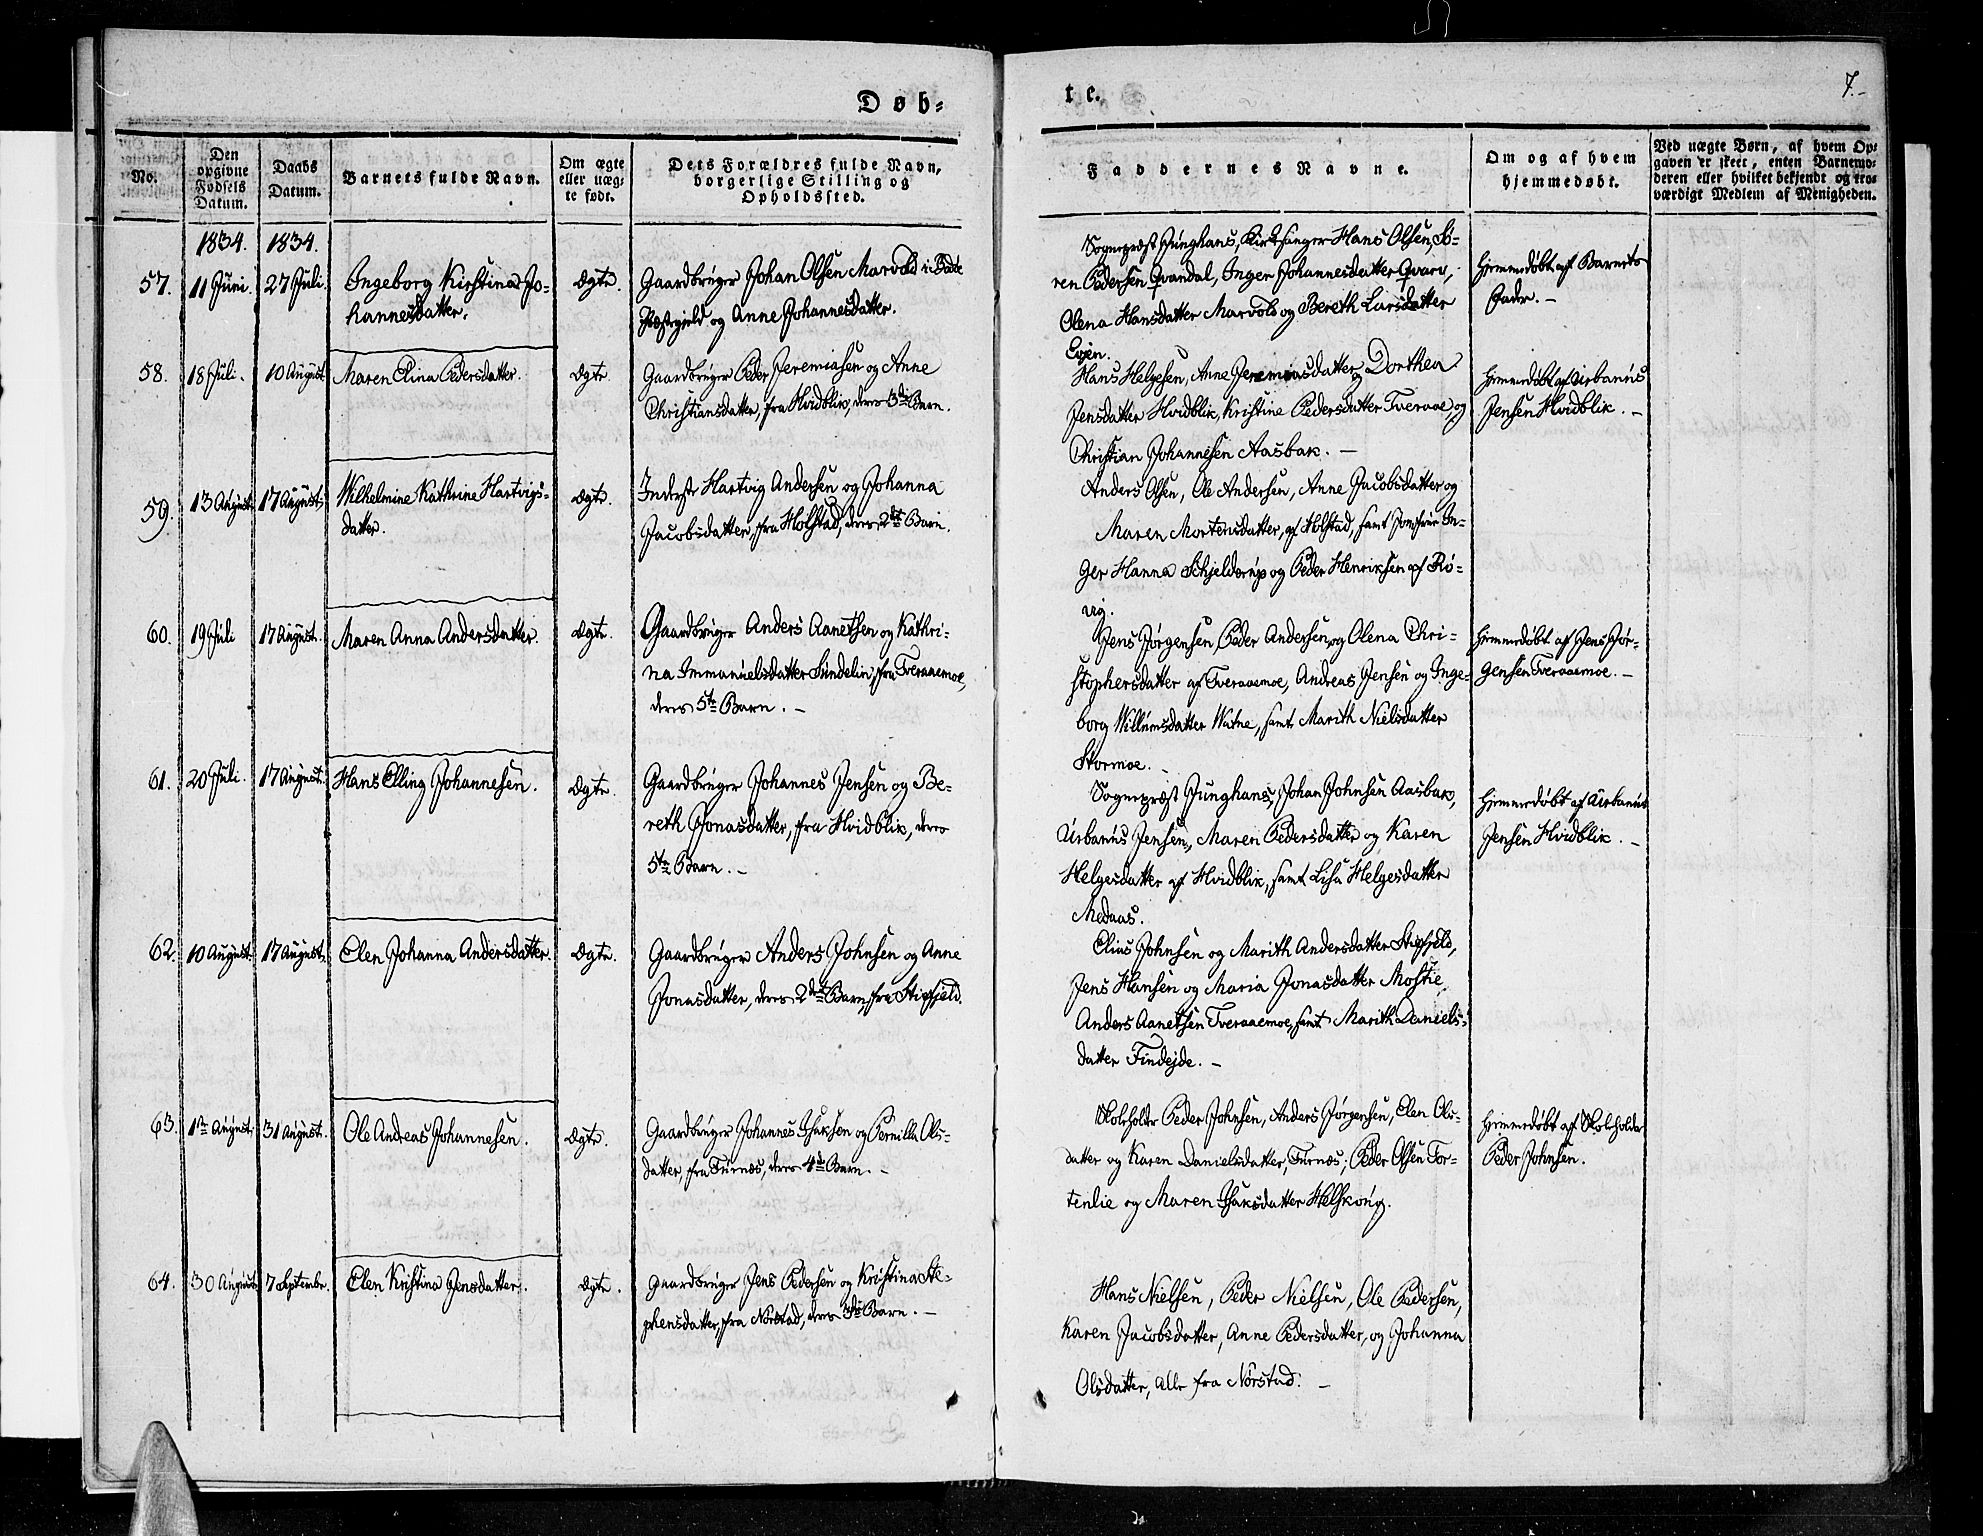 Døb=
te.
7.-
No.
Den
opgivne
Fødsels
Datum.
Daabs
Datum.
Barnets fulde Navn.
Om ægte
eller uæg-
te født.
Dets Forældres fulde Navn,
borgerlige Stilling og
Opholdssted.
Faddernes Navne.
Om og af hvem
hjemmedøbt.
Ved uægte Børn, af hvem Op-
gaven er skeet, enten Barnemo-
deren eller hvilket bekjendt og tro-
værdigt Medlem af Menigheden.
1834. 1834.
57. 11 Juni. 27 Juli. Ingeborg Kirstina Jo-
hannesdatter.
Ægte.
Gaardbruger Johan Olsen Marvold i Bodø
Præstegield og Anne Johannesdatter.
Sognepræst Junghans, Kirkesanger Hans Olsen, Sø-
ren Pedersen Qvandal, Inger Johannesdatter Qvarv,
Olena Hansdatter Marvold og Bereth Larsdatter
Evjen.
Hjemmedøbt af Barnets
Fader. -
58. 18 Juli. 10 August Maren Elina Pedersdatter.
Ægte.
Gaardbruger Peder Jeremiasen og Anne
Christiansdatter, fra Hvidblik, deres 3die Barn.
Hans Helgesen, Anne Jeremiasdatter og Dorthea
Jensdatter Hvidblik, Kristine Pedersdatter Tveraae, og
Christian Johannesen Aasbak. -
Hjemmedøbt af Urbanus
Jensen Hvidblik. -
59. 13 August. 17 August. Wilhelmine Kathrine Hartvigs-
datter.
Ægte.
Inderst Hartvig Andersen og Johanna
Jacobsdatter, fra Holstad, deres 2det Barn.
Anders Olsen, Ole Andersen, Anne Jacobsdatter og
Maren Mortensdatter, af Holstad, samt Jomfrue In-
ger Hanna Schjelderup og Peder Henriksen af Rø-
vig.
60. 19 Juli 17 August. Maren Anna Andersdatter.
Ægte.
Gaardbruger Anders Aanetsen og Kathri-
na Immanuelsdatter Sundelin, fra Tveraaemoe,
deres 5te Barn. -
Jens Jørgensen, Peder Andersen, og Olena Chri-
stophersdatter af Tveraaemoe, Andreas Jensen og Inge-
borg Willumsdatter Watne, samt Marith Nielsdatter
Stormoe. -
Hjemmedøbt af Jens Jør-
gensen Tveraaemoe. -
61. 20 Juli. 17 August. Hans Elling Johannesen.
Ægte.
Gaardbruger Johannes Jensen og Be-
reth Jonasdatter, fra Hvidblik, deres
5te Barn. -
Sognepræst Junghans, Johan Johnsen Aasbak,
Urbanus Jensen, Maren Pedersdatter og Karen
Helgesdatter af Hvidblik, samt Lisa Helgesdatter
Medaas.
Hjemmedøbt af Urbanus
Jensen Hvidblik. -
62. 10 August. 17 August. Elen Johanna Andersdatter.
Ægte.
Gaardbruger Anders Johnsen og Anne
Jonasdatter, deres 2det Barn, fra Stipfjeld.
Elias Johnsen og Marith Andersdatter Stipfjeld,
Jens Hansen og Maria Jonasdatter Mostie,
Anders Aanetsen Tveraaemoe, samt Marith Daniels-
datter Findejde. -
63. 1ste August. 31 August. Ole Andreas Johannesen.
Ægte.
Gaardbruger Johannes Isaksen og Pernilla Ols-
datter, fra Furnes, deres 4de Barn. -
Skoleholder Peder Johnsen, Anders Jørgensen, Elen Ols-
datter og Karen Danielsdatter, Furnes; Peder Olsen Tor-
tenlie og Maren Isaksdatter Helskong.
Hjemmedøbt af Skoleholder
Peder Johnsen.
64. 30 August 7 September. Elen Kristina Jensdatter.
Ægte.
Gaardbruger Jens Pedersen og Kristina Ste-
phensdatter, fra Nørstad, deres 3die Barn. -
Hans Nielsen, Peder Nielsen, Ole Pedersen,
Karen Jacobsdatter, Anne Pedersdatter, og Johanna
Olsdatter, alle fra Nørstad. -